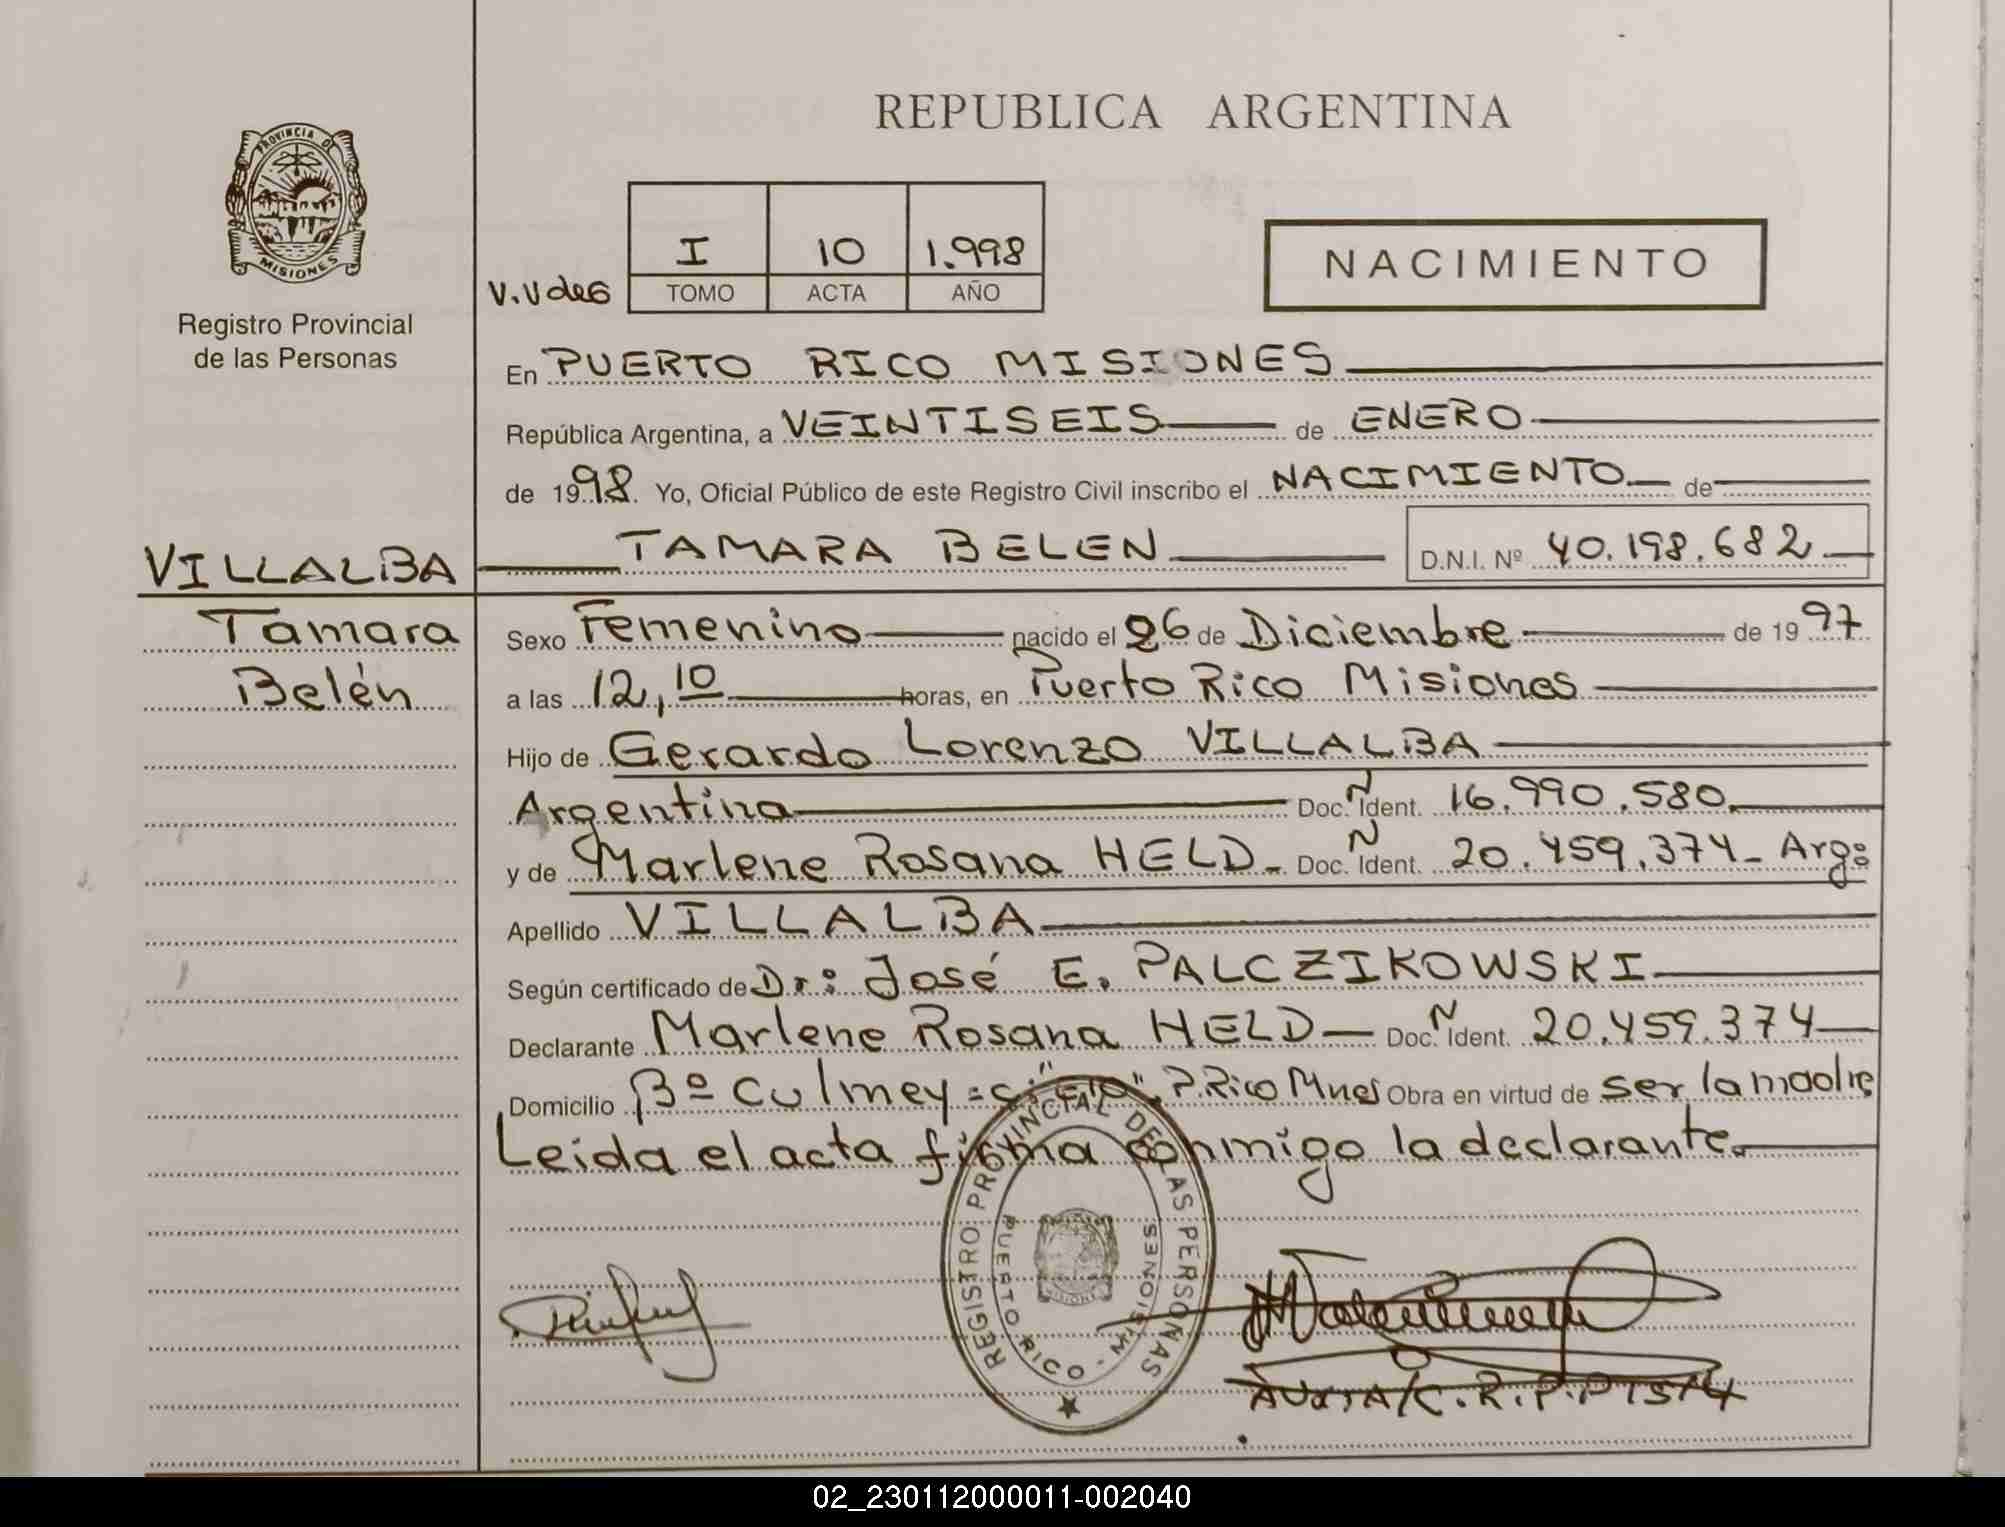 REPUBLICA ARGENTINA
PROVINCIA DE
MISIONES
Registro Provincial
de las Personas
I 10 1.998
TOMO ACTA AÑO
NACIMIENTO
En PUERTO RICO MISIONES
República Argentina, a VEINTISEIS de ENERO
de 1998. Yo, Oficial Público de este Registro Civil inscribo el NACIMIENTO de
VILLALBA TAMARA BELEN D.N.I. Nº 40.198.682
Tamara
Belén
Sexo Femenino nacido el 26 de Diciembre de 1997
a las 12,10 horas, en Puerto Rico Misiones
Hijo de Gerardo Lorenzo VILLALBA
Argentina Doc. N Ident. 16.990.580
y de Marlene Rosana HELD Doc. N Ident. 20.459.374 - Arg:
Apellido VILLALBA
Según certificado de Dr: José E. PALCZIKOWSKI
Declarante Marlene Rosana HELD Doc. N Ident. 20.459.374
Domicilio Bº Culmey P.Rico Mnes Obra en virtud de ser la madre
Leida el acta firma conmigo la declarante
REGISTRO PROVINCIAL DE LAS PERSONAS
PUERTO RICO - MISIONES
MISIONES
02_230112000011-002040